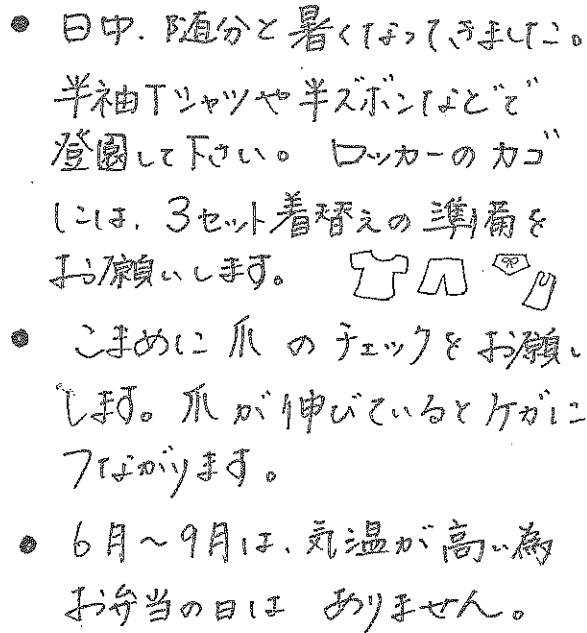 ● 日中、随分と暑くなってきました。
半袖Tシャツや半ズボンなどで
登園して下さい。 ロッカーのカゴ
には、3セット着替えの準備を
お願いします。
● こまめに爪のチェックをお願い
します。爪が伸びているとケガに
つながります。
● 6月～9月は、気温が高い為
お弁当の日は ありません。